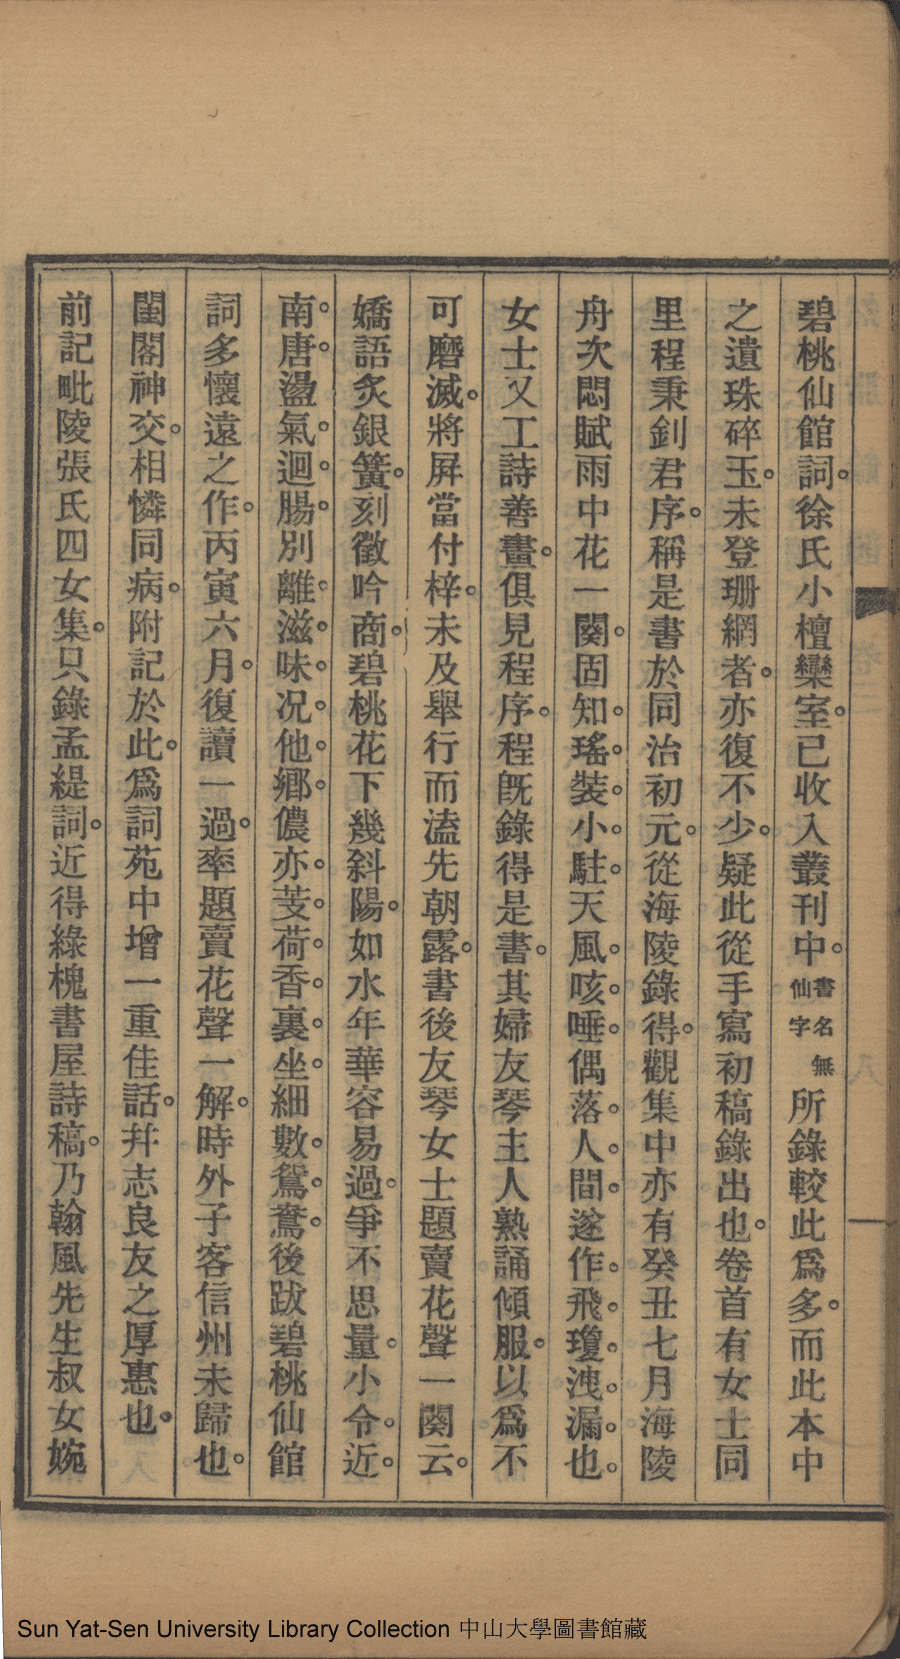 碧桃仙館詞。徐氏小檀欒室。已收入叢刊中。書名無仙字所錄較此爲多。而此本中
之遺珠碎玉。未登珊網者。亦復不少。疑此從手寫初稿錄出也。卷首有女士同
里程秉釗君序。稱是書於同治初元。從海陵錄得。觀集中亦有癸丑七月海陵
舟次悶賦雨中花一闋。固知。瑤。裝。小。駐。天風。咳。唾。偶落。人。間。遂作。飛。瓊。洩。漏。也。
女士又工詩善畫。俱見程序。程既錄得是書。其婦友琴主人熟誦傾服。以爲不
可磨滅。將屏當付梓。未及舉行而溘先朝露。書後友琴女士題賣花聲一闋云。
嬌語炙銀簧。刻徵吟商。碧桃花下幾斜陽。如水年華容易過。爭不思量。小令。近。
南。唐。盪氣。迴。腸。別離。滋。味。况。他。鄉。儂亦。芰。荷。香。裏。坐。細數。鴛。鴦。後跋碧桃仙館
詞多懷遠之作。丙寅六月。復讀一過。率題賣花聲一解。時外子客信州未歸也。
閨閣神交。相憐同病。附記於此。爲詞苑中增一重佳話。幷志良友之厚惠也。
前記毗陵張氏四女集。只錄孟緹詞。近得綠槐書屋詩稿。乃翰風先生叔女婉
Sun Yat-Sen University Library Collection 中山大學圖書館藏